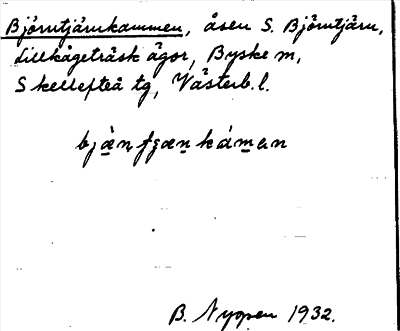 Björntjärnkammen, åsen S. Björntjärn,
Lillkågeträsk ägor, Byske m,
Skellefteå tg, Västerb. l.
bjä̀ṇfjæṇkámen
B. Nygren 1932.